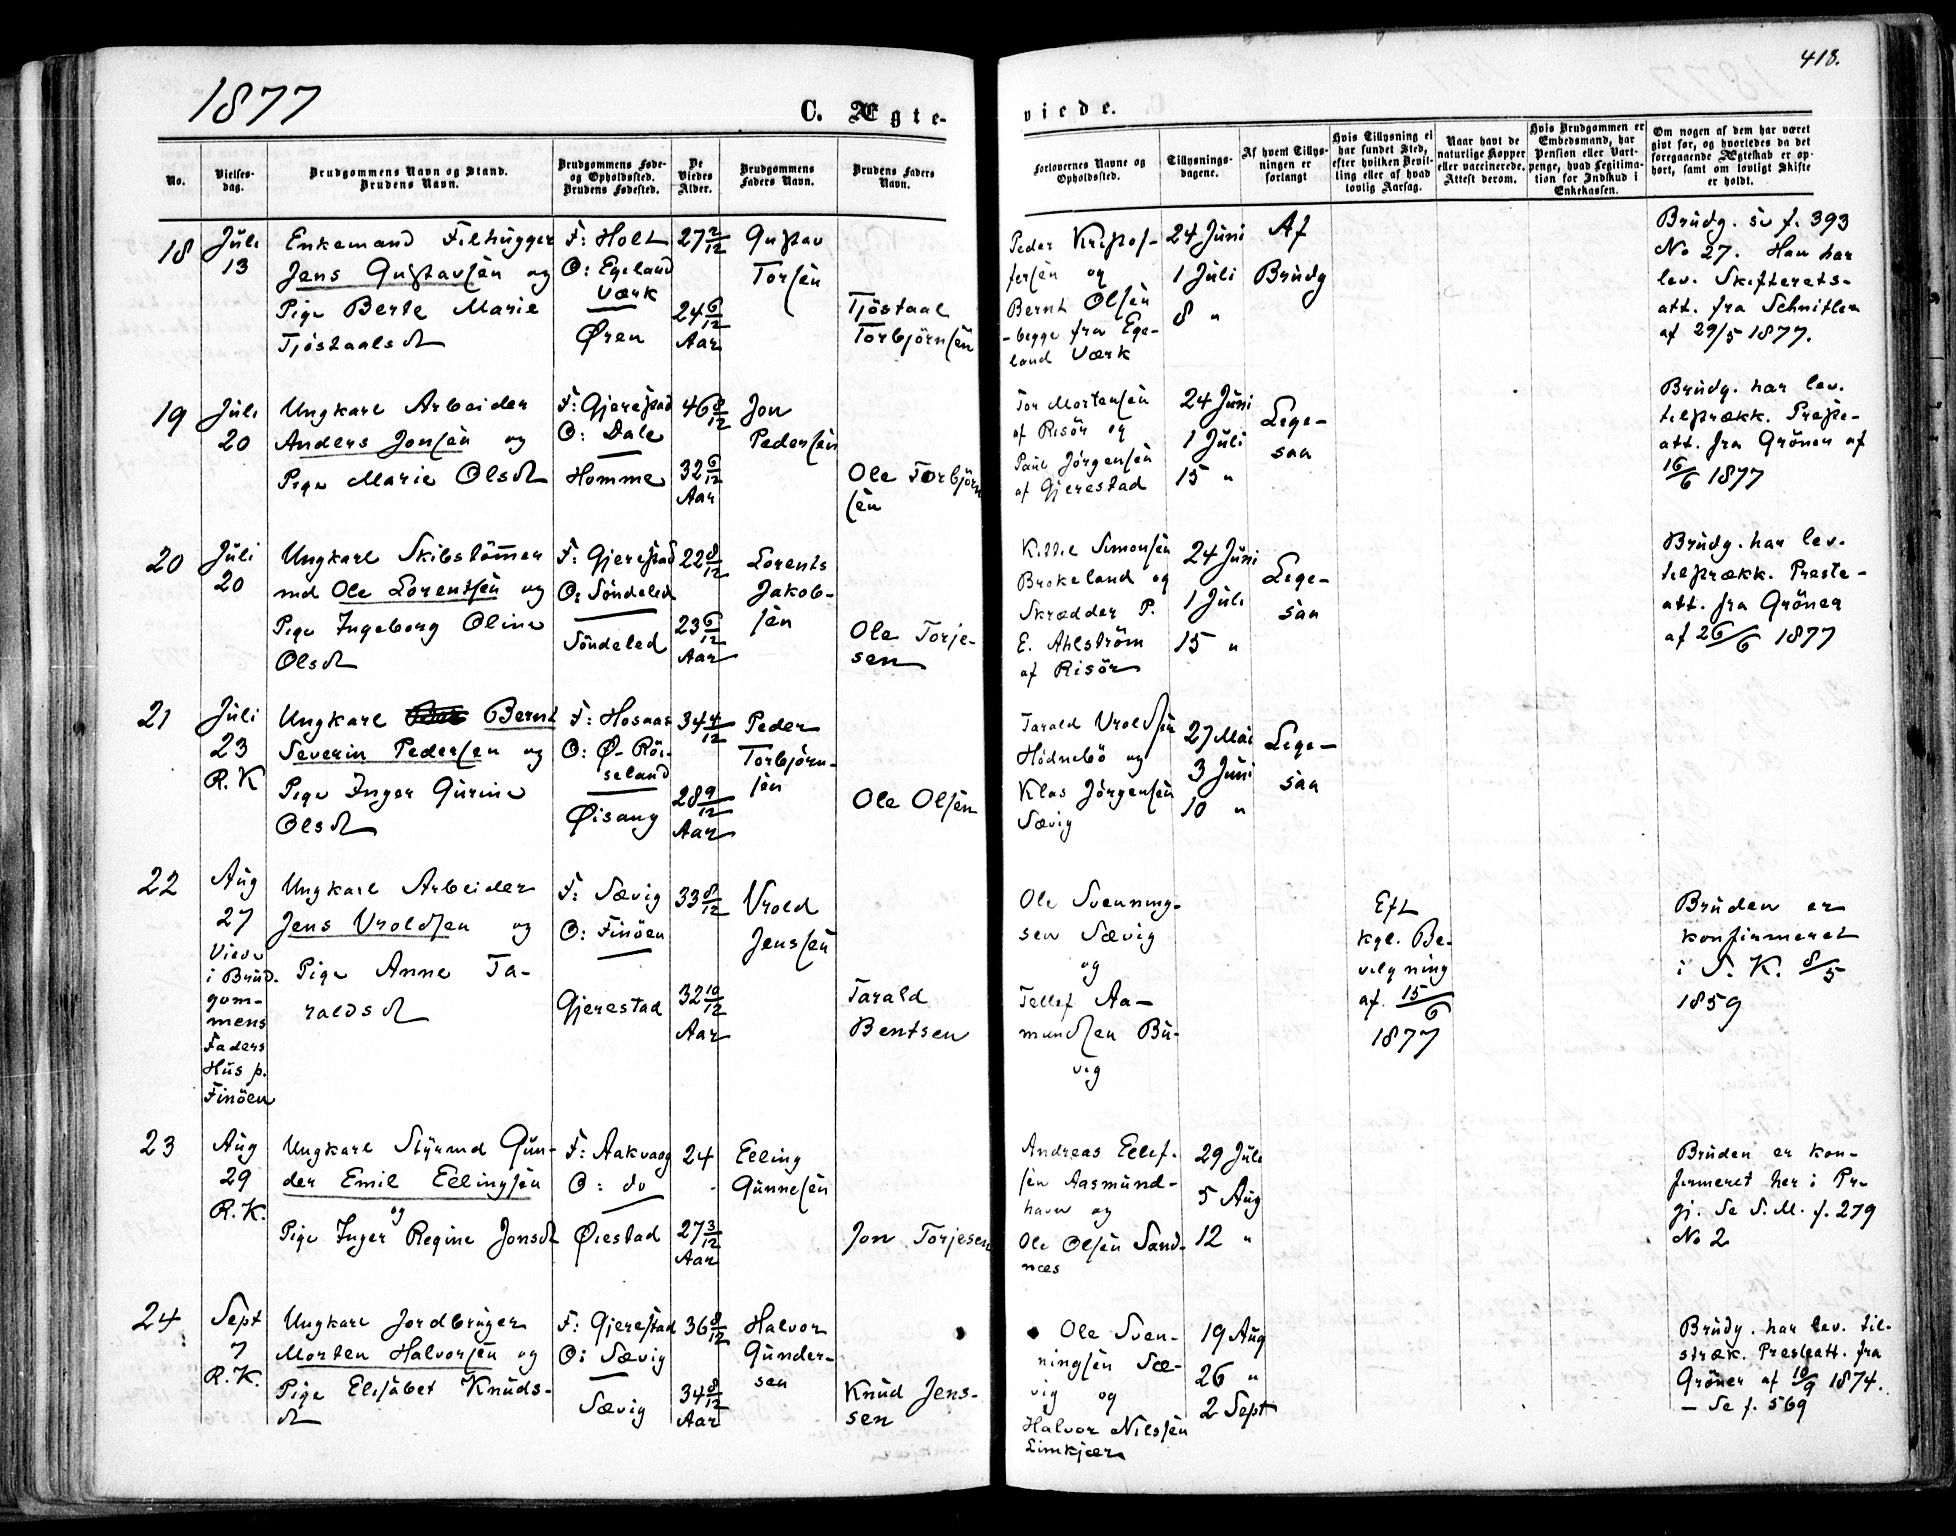 1877
418.
C. Ægte-
viede.
No.
Vielses-
dag.
Brudgommens Navn og Stand.
Brudens Navn.
Brudgommens Føde-
og Opholdssted.
Brudens Fødested.
De
Viedes
Alder.
Brudgommens
Faders Navn.
Brudens Faders
Navn.
Forlovernes Navne og
Opholdssted.
Tillysnings-
dagene.
Af hvem Tillys-
ningen er
forlangt
Hvis Tillysning ei
har fundet Sted,
efter hvilken Bevil-
ling eller af hvad
lovlig Aarsag.
Naar havt de
naturlige Kopper
eller vaccinerede.
Attest derom.
Hvis Brudgommen er
Embedsmand, har
Pension eller Vart-
penge, hvad Legitima-
tion for Indskud i
Enkekassen.
Om nogen af dem har været
givt før, og hvorledes da det
foregaaende Ægteskab er op-
hørt, samt om lovligt Skifte
er holdt.
18
Juli
13
Enkemand Filhugger
Jens Gustavsen og
Pige Berte Marie
Tjöstaalsdt
F: Holt
O: Egeland
Værk
Øren
27 2/12
24 6/12
Aar
Gustav
Torsen
Tjöstaal
Torbjörnsen
Peder Kristof-
fersen og
Bernt Olsen
- begge fra Ege-
land Værk
24 Juni
1 Juli
8 "
Af
Brudg
Brudg. se f. 393
No 27. Han har
lev. Skifterets-
att. fra Schnitler
af 29/5 1877.
19
Juli
20
Ungkarl Arbeider
Anders Jonsen og
Pige Marie Olsdt
F: Gjerestad
O: Dale
Homme
46 8/12
32 6/12
Aar
Jon
Pedersen
Ole Torbjörn
sen
Tor Mortensen
af Risör og
Paul Jørgensen
af Gjerestad
24 Juni
1 Juli
15 "
Lige-
saa
Brudg. har lev.
tilstrækk. Preste-
att. fra Gröner af
16/6 1877
20
Juli
20
Ungkarl Skibstömmer
md Ole Lorentsen og
Pige Ingeborg Oline
Olsdt
F: Gjerestad
O: Söndeled
Söndeled
22 8/12
23 6/12
Aar
Lorents
Jakob-
sen
Ole Torje-
sen
Kittil Simonsen
Brokeland og
Skrædder P.
E. Ahlström
af Risör
24 Juni
1 Juli
15 "
Lige-
saa
Brudg. har lev.
tilstrækk. Preste-
att. fra Gröner
af 26/6 1877
21
Juli
23
R. K
Ungkarl Bernt
Severin Pedersen og
Pige Inger Gurine
Olsdt
F: Hosaas
O: Ø- Röi-
seland
Øisang
34 4/12
28 9/12
Aar
Peder
Torbjörn-
sen
Ole Olsen
Tarald Vroldsen
Hödnebö og
Klas Jörgensen
Sævig
27 Mai
3 Juni
10 "
Lige-
saa
22
Aug
27
Viede
i Brud-
gom-
mens
Faders
Hus p.
Finöen
Ungkarl Arbeider
Jens Vroldsen og
Pige Anne Ta-
raldsdt
F: Sævig
O: Finöen
Gjerestad
33 8/12
32 10/12
Aar
Vrold
Jenssen
Tarald
Bentsen
Ole Svenning-
sen Sævig
og
Tellef Aa-
mundsen Bu-
vig
Eft
kgl. Be-
vilgning
af 15/6
1877
Bruden er
konfirmeret
i S. K. 8/5
1859
23
Aug
29
R. K.
Ungkarl Styrmd Gun-
der Emil Ellingsen
og
Pige Inger Regine Jonsdt
F: Aakvaag
O: do
Øiestad
24
27 3/12
Aar
Elling
Gunnesen
Jon Torjesen
Andreas Ellef-
sen Aasmund-
havn og
Ole Olsen Sand-
næs
29 Juli
5 Aug
12 "
Bruden er kon-
firmeret her i Pr-
gj. Se S. M. f. 279
No 2
24
Sept
7
R. K.
Ungkarl Jordbruger
Morten Halvorsen og
Pige Elisabet Knuds-
dt
F: Gjerestad
O: Sævig
Sævig
36 8/12
34 8/12
Aar
Halvor
Gunder-
sen
Knud Jens-
sen
Ole Sven-
ningsen Sæ-
vig og
Halvor Nilssen
Limkjær
19 Aug
26 "
2 Sept
Brudg. har lev. til-
stræk. Presteatt. fra
Gröner af 10/9 1874.
- Se f. 569